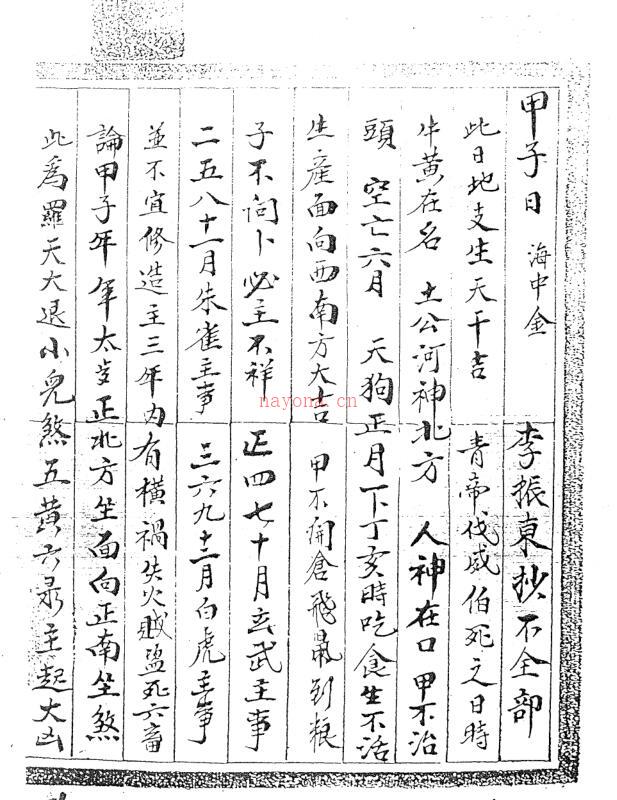 甲子日 海中金 李振東抄不全部
此日地支生天干吉 青帝伐威伯死之日時
牛黄在名 土公河神北方 人神在口 甲不治
頭 空亡六月 天狗正月下丁亥時吃食生不活
生産面向西南方大吉 甲不開倉飛鼠到粮
子不问卜必主不祥 正四七十月玄武主事
二五八十一月朱雀主事 三六九十二月白虎主事
並不宜修造主三年内有横禍失火贼盜死六畜
論甲子年 年太岁正北方坐面向正南坐煞
此為羅天大退小兒煞五黄六录主起大凶
nayona.cn